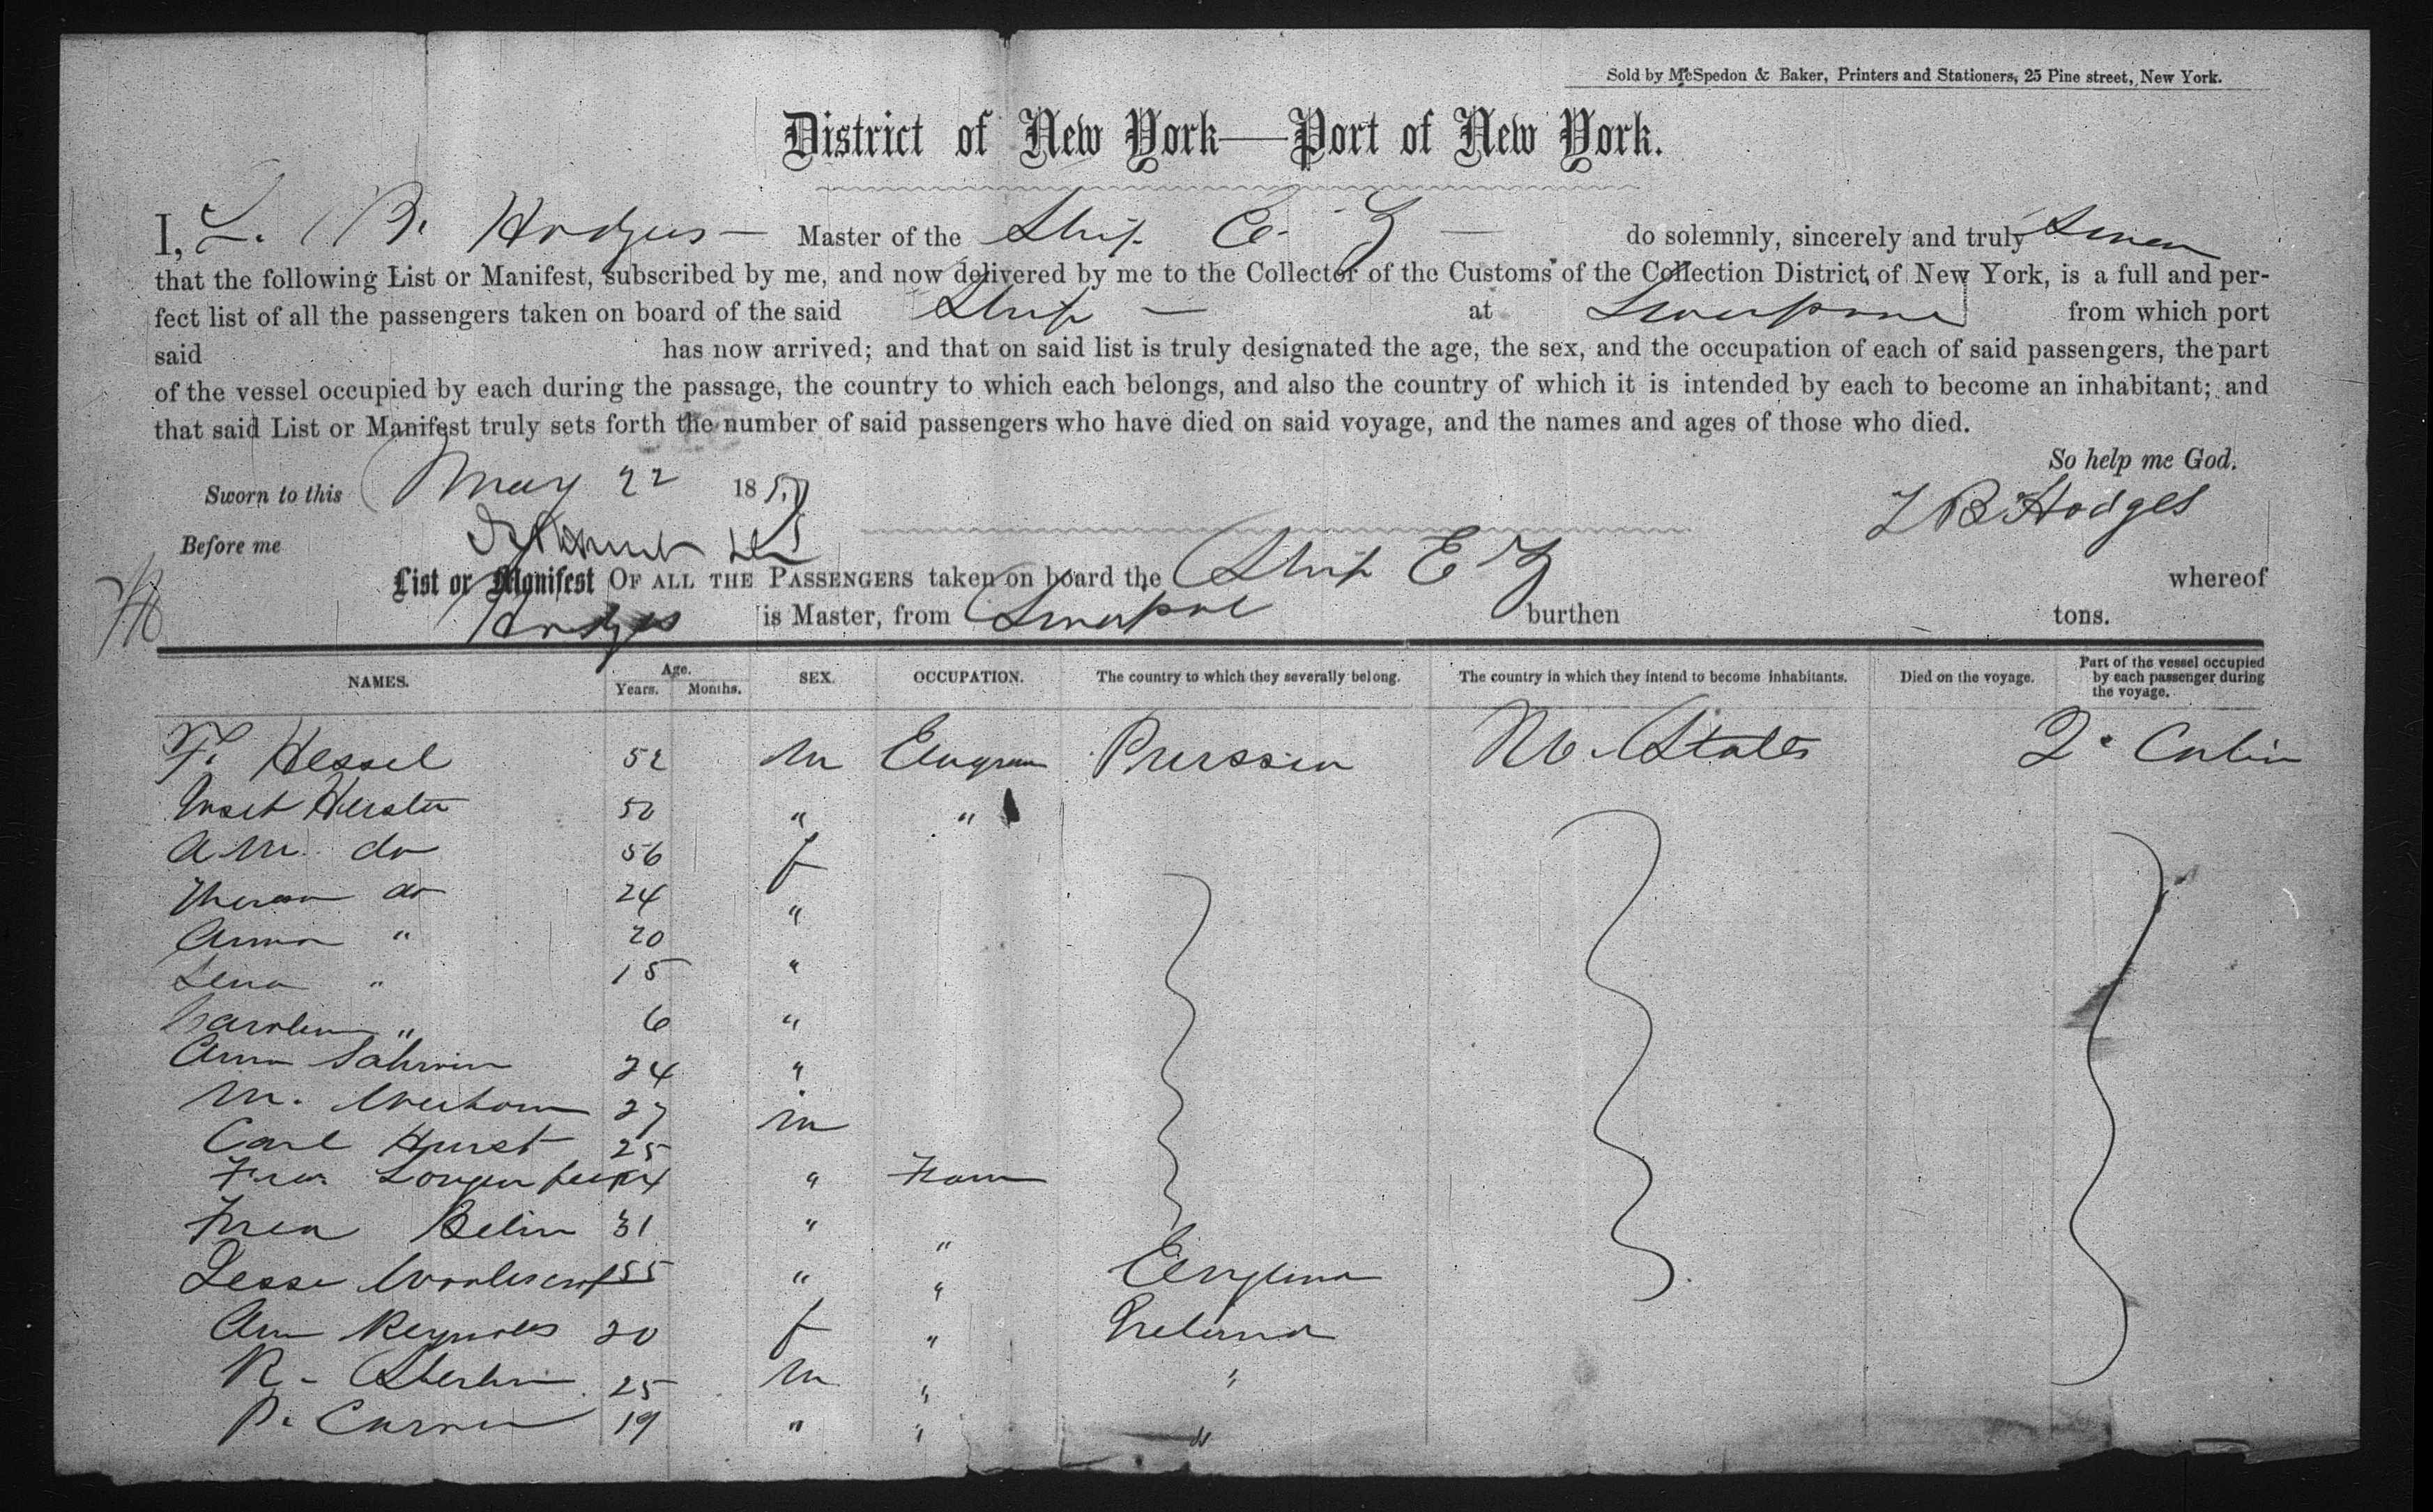 Sold by McSpedon & Baker, Printers and Stationers, 25 Pine street, New York.
District of New York—Port of New York.
I, L. B. Hodges — Master of the Ship E. Z — do solemnly, sincerely and truly Swear
that the following List or Manifest, subscribed by me, and now delivered by me to the Collector of the Customs of the Collection District of New York, is a full and per-
fect list of all the passengers taken on board of the said Ship — at Liverpool from which port
said has now arrived; and that on said list is truly designated the age, the sex, and the occupation of each of said passengers, the part
of the vessel occupied by each during the passage, the country to which each belongs, and also the country of which it is intended by each to become an inhabitant; and
that said List or Manifest truly sets forth the number of said passengers who have died on said voyage, and the names and ages of those who died.
So help me God.
Sworn to this May 22 185
L B Hodges
Before me
List or Manifest OF ALL THE PASSENGERS taken on board the Ship E Z whereof
Hodges is Master, from Liverpool burthen tons.
NAMES. Age. Years. Months. SEX. OCCUPATION. The country to which they severally belong. The country in which they intend to become inhabitants. Died on the voyage. Part of the vessel occupied by each passenger during the voyage.
F. Hessel 52 m Prussia States 2 Cabin
50 " "
A M. do 56 f
do 24 "
Anna " 20
Lena " 15 "
" 6 "
Anna 24 "
M. 27 m
Carl Hurst 25
24 " Farm
31 " "
55 " " England
Ann Reynolds 20 f " Ireland
R. 25 m " "
P. 19 " " "